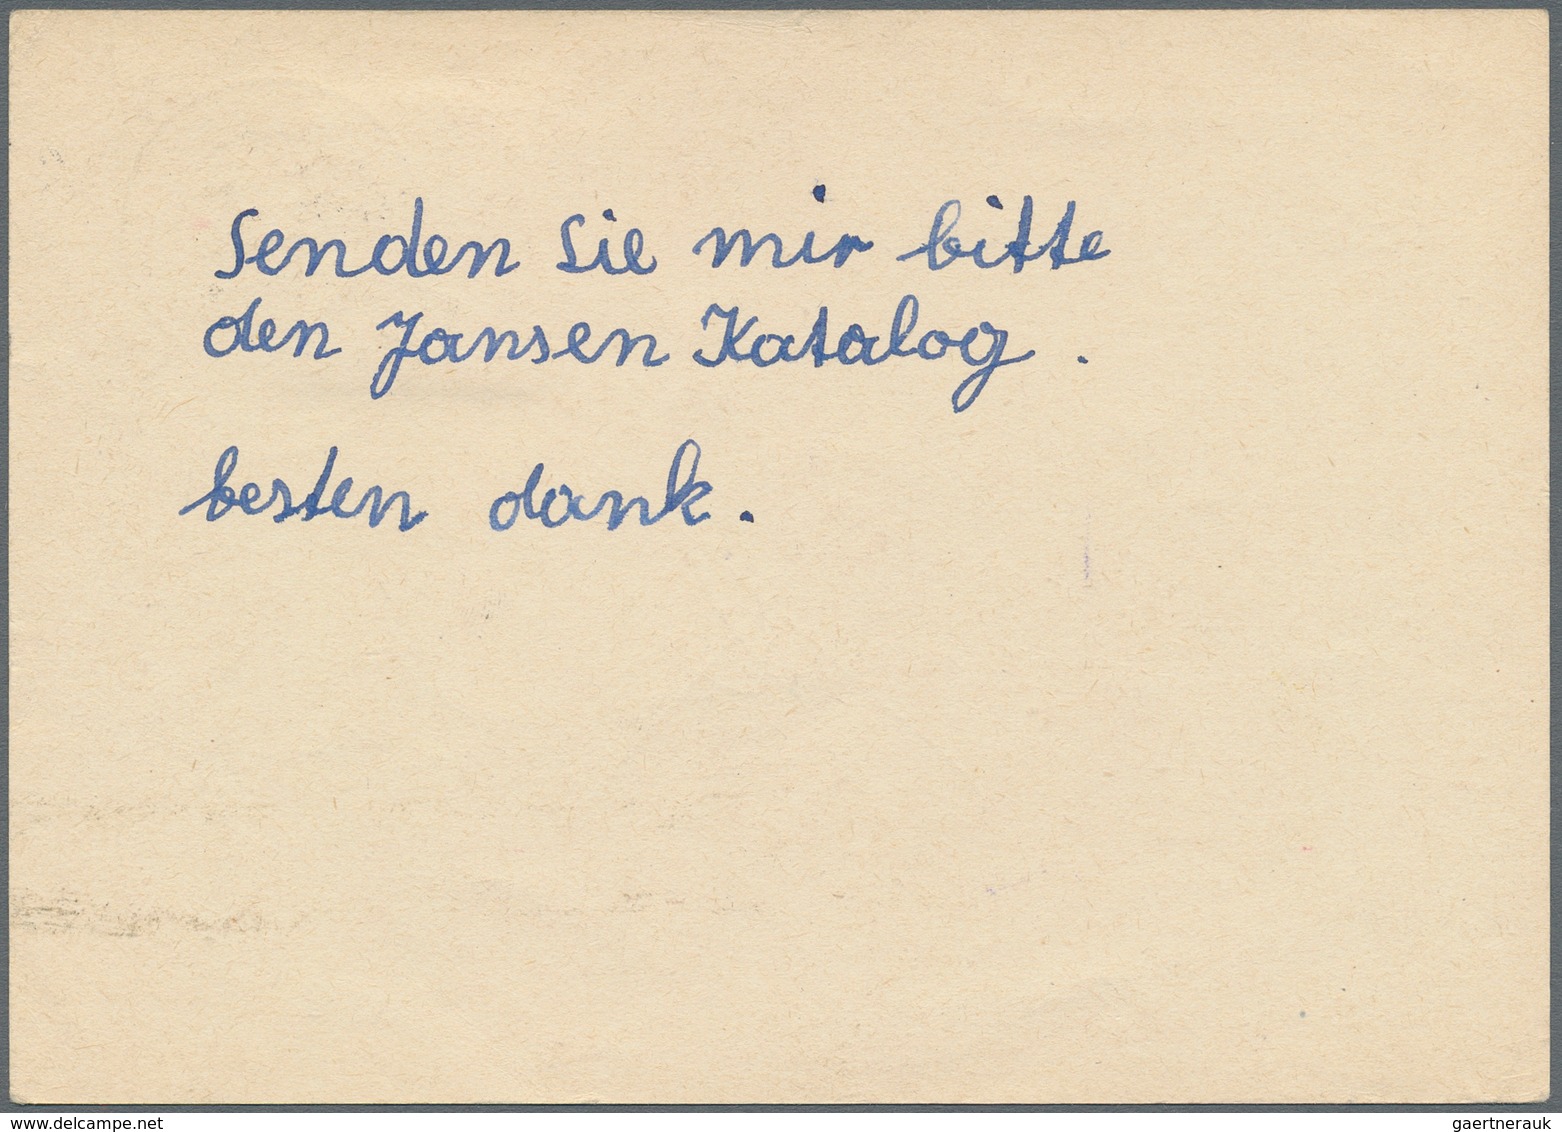 Senden Sie mir bitte
den Jansen Katalog .
besten dank .
www.delcampe.net
gaertnerauk